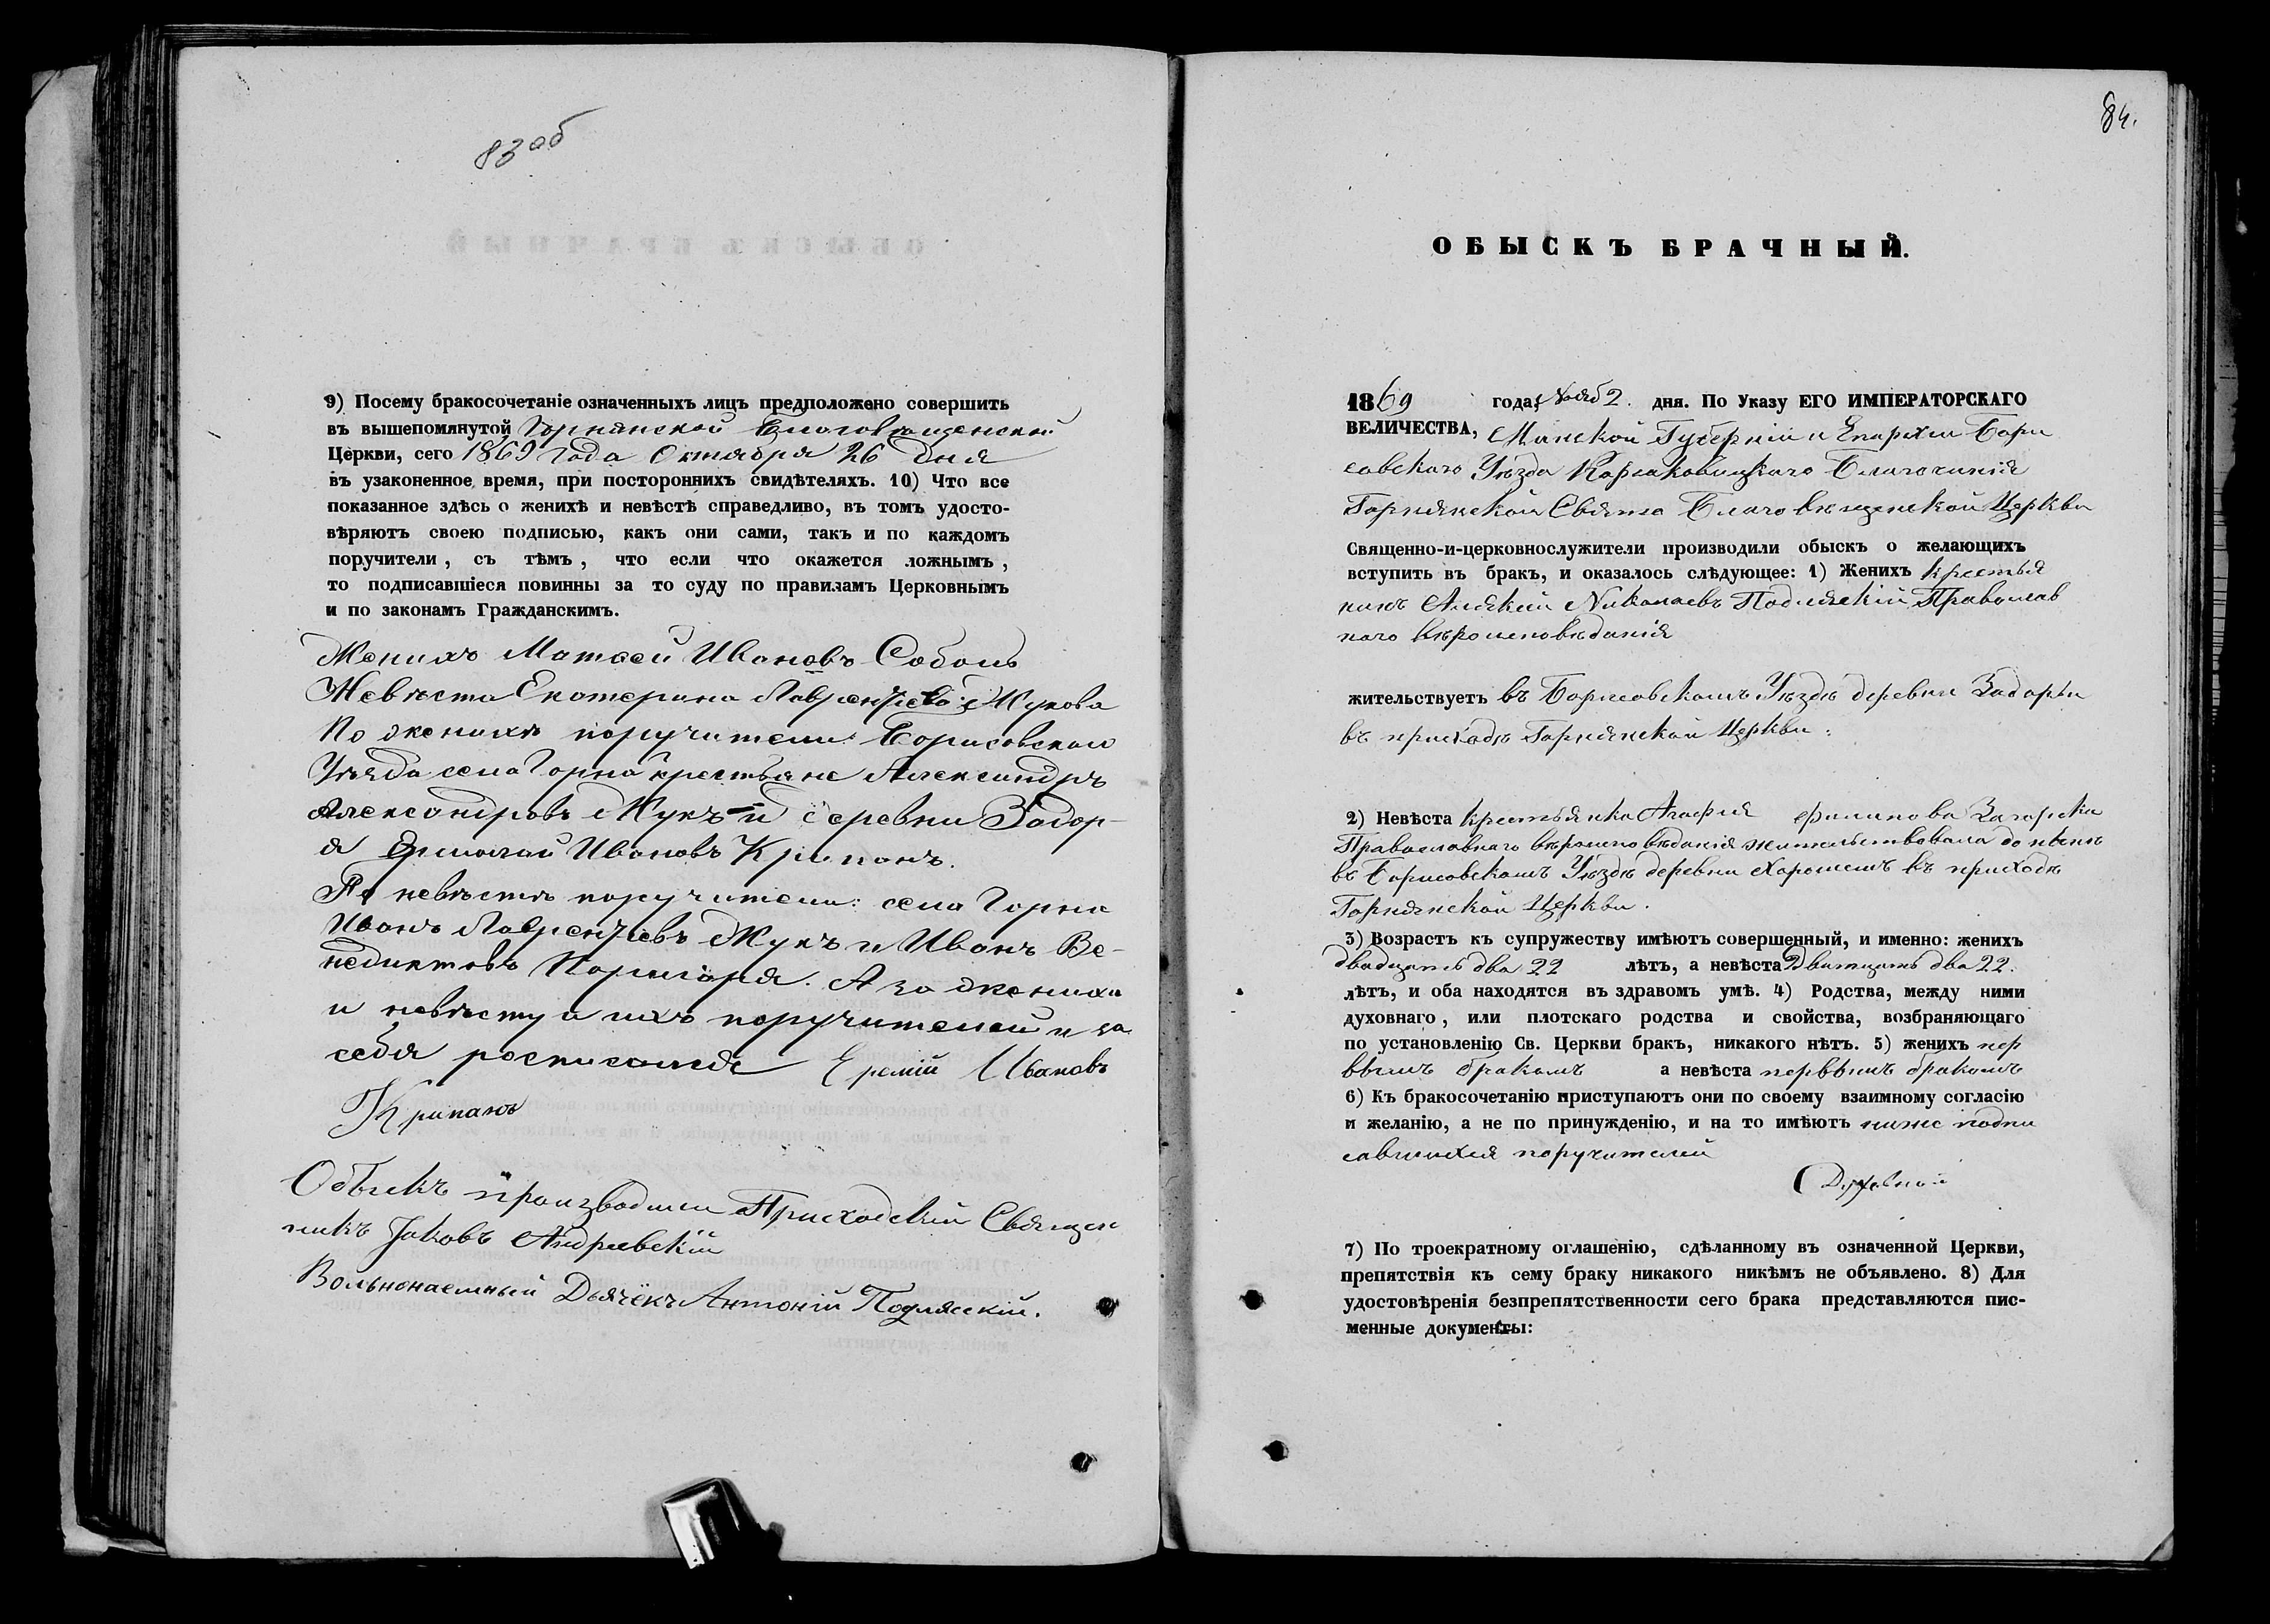 83 об
9) Посему бракосочетаніе означенныхъ лицъ предположено совершить
въ вышепомянутой Горнянской Благовѣщенской
Церкви, сего 1869 года Октября 26 дня
въ узаконенное время, при постороннихъ свидѣтеляхъ. 10) Что все
показанное здѣсь о женихѣ и невѣстѣ справедливо, въ томъ удосто-
вѣряютъ своею подписью, какъ они сами, такъ и по каждомъ
поручители, съ тѣмъ, что если что окажется ложнымъ,
то подписавшіеся повинны за то суду по правиламъ Церковнымъ
и по законамъ Гражданскимъ.
Женихъ Матѳей Ивановъ Соболь
Невѣста Екатерина Лаврентіева Жукова
По женихѣ поручители: Борисовскаго
Уѣзда села Горна крестьяне Александръ
Александровъ Жукъ и деревни Задорь-
я Ермолай Ивановъ Крипанъ.
По невѣстѣ поручители: села Горна
Иванъ Лаврентіевъ Жукъ и Иванъ Ве-
недиктовъ. А за жениха
и невѣсту и ихъ поручителей и за
себя росписался Еремій Ивановъ
Крипанъ
Обыскъ производили Приходскій Священ
никъ Іаковъ Андреевскій
Вольнонаемный Дьячёкъ Антоній Подляскій.
84.
ОБЫСКЪ БРАЧНЫЙ.
1869 года Нояб 2. дня. По Указу ЕГО ИМПЕРАТОРСКАГО
ВЕЛИЧЕСТВА, Минской Губерніи и Епархіи Бори
совскаго Уѣзда Корсаковицкаго Благочинія
Горнянской Свято Благовѣщенской Церкви
Священно-и-церковнослужители производили обыскъ о желающихъ
вступить въ бракъ, и оказалось слѣдующее: 1) Женихъ крестья
нинъ Алексѣй Николаевъ Подляскій Православ
наго вѣроисповѣданія
жительствуетъ въ Борисовскомъ Уѣздѣ деревни Задорьи
въ приходѣ Горнянской Церкви:
2) Невѣста крестьянка Агафія Филипова Загорска
Православнаго вѣроисповѣданія жительствовала до нынѣ
въ Борисовскомъ Уѣздѣ деревни Хорошемъ въ приходѣ
Горнянской Церкви.
3) Возрастъ къ супружеству имѣютъ совершенный, и именно: женихъ
двадцать два 22 лѣтъ, а невѣста Дватцать два 22.
лѣтъ, и оба находятся въ здравомъ умѣ. 4) Родства, между ними
духовнаго, или плотскаго родства и свойства, возбраняющаго
по установленію Св. Церкви бракъ, никакого нѣтъ. 5) женихъ пер
вымъ бракомъ а невѣста первымъ бракомъ
6) Къ бракосочетанію приступаютъ они по своему взаимному согласію
и желанію, а не по принужденію, и на то имѣютъ ниже подпи
савшихся поручителей
7) По троекратному оглашенію, сдѣланному въ означенной Церкви,
препятствія къ сему браку никакого никѣмъ не объявлено. 8) Для
удостовѣренія безпрепятственности сего брака представляются пис-
менные документы: